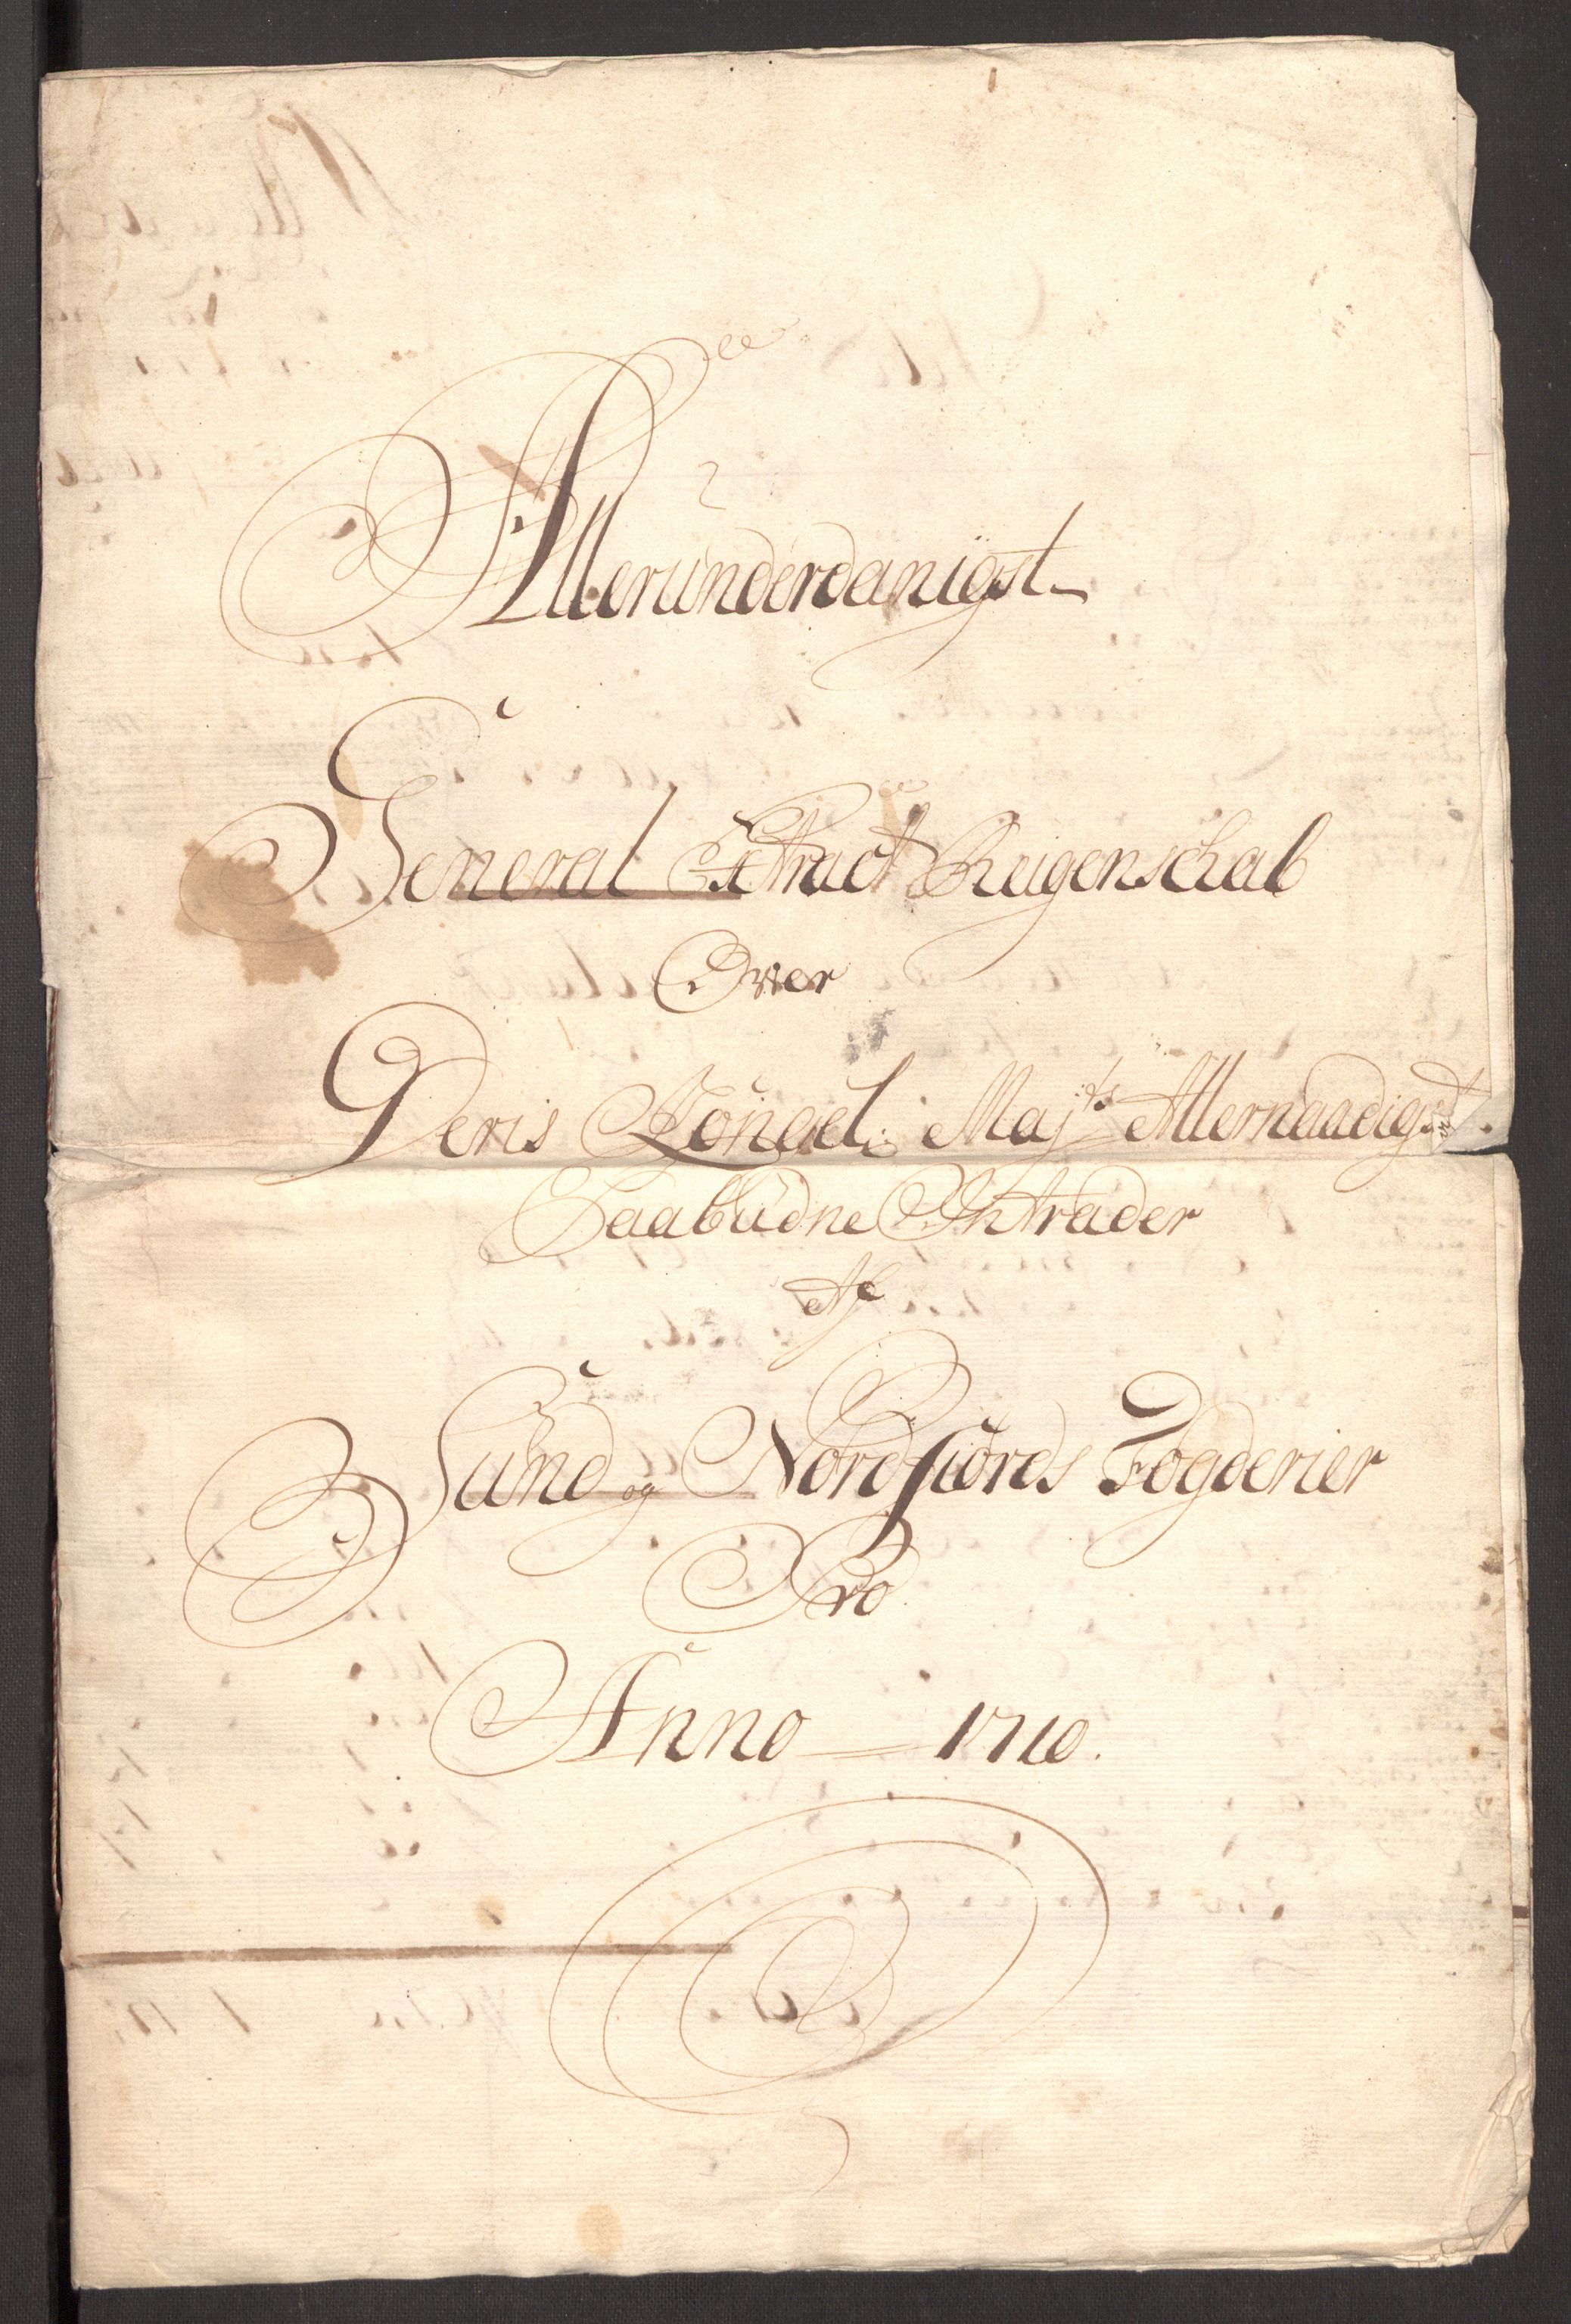 Allerunderdanigst
General Extract Reigenschab
Over
Deris Kongel: Maj.ts Allernaadigst.
Paabudne Intrader
Af
Sund og Nordfiords Fogderier
Pro
Anno 1710.